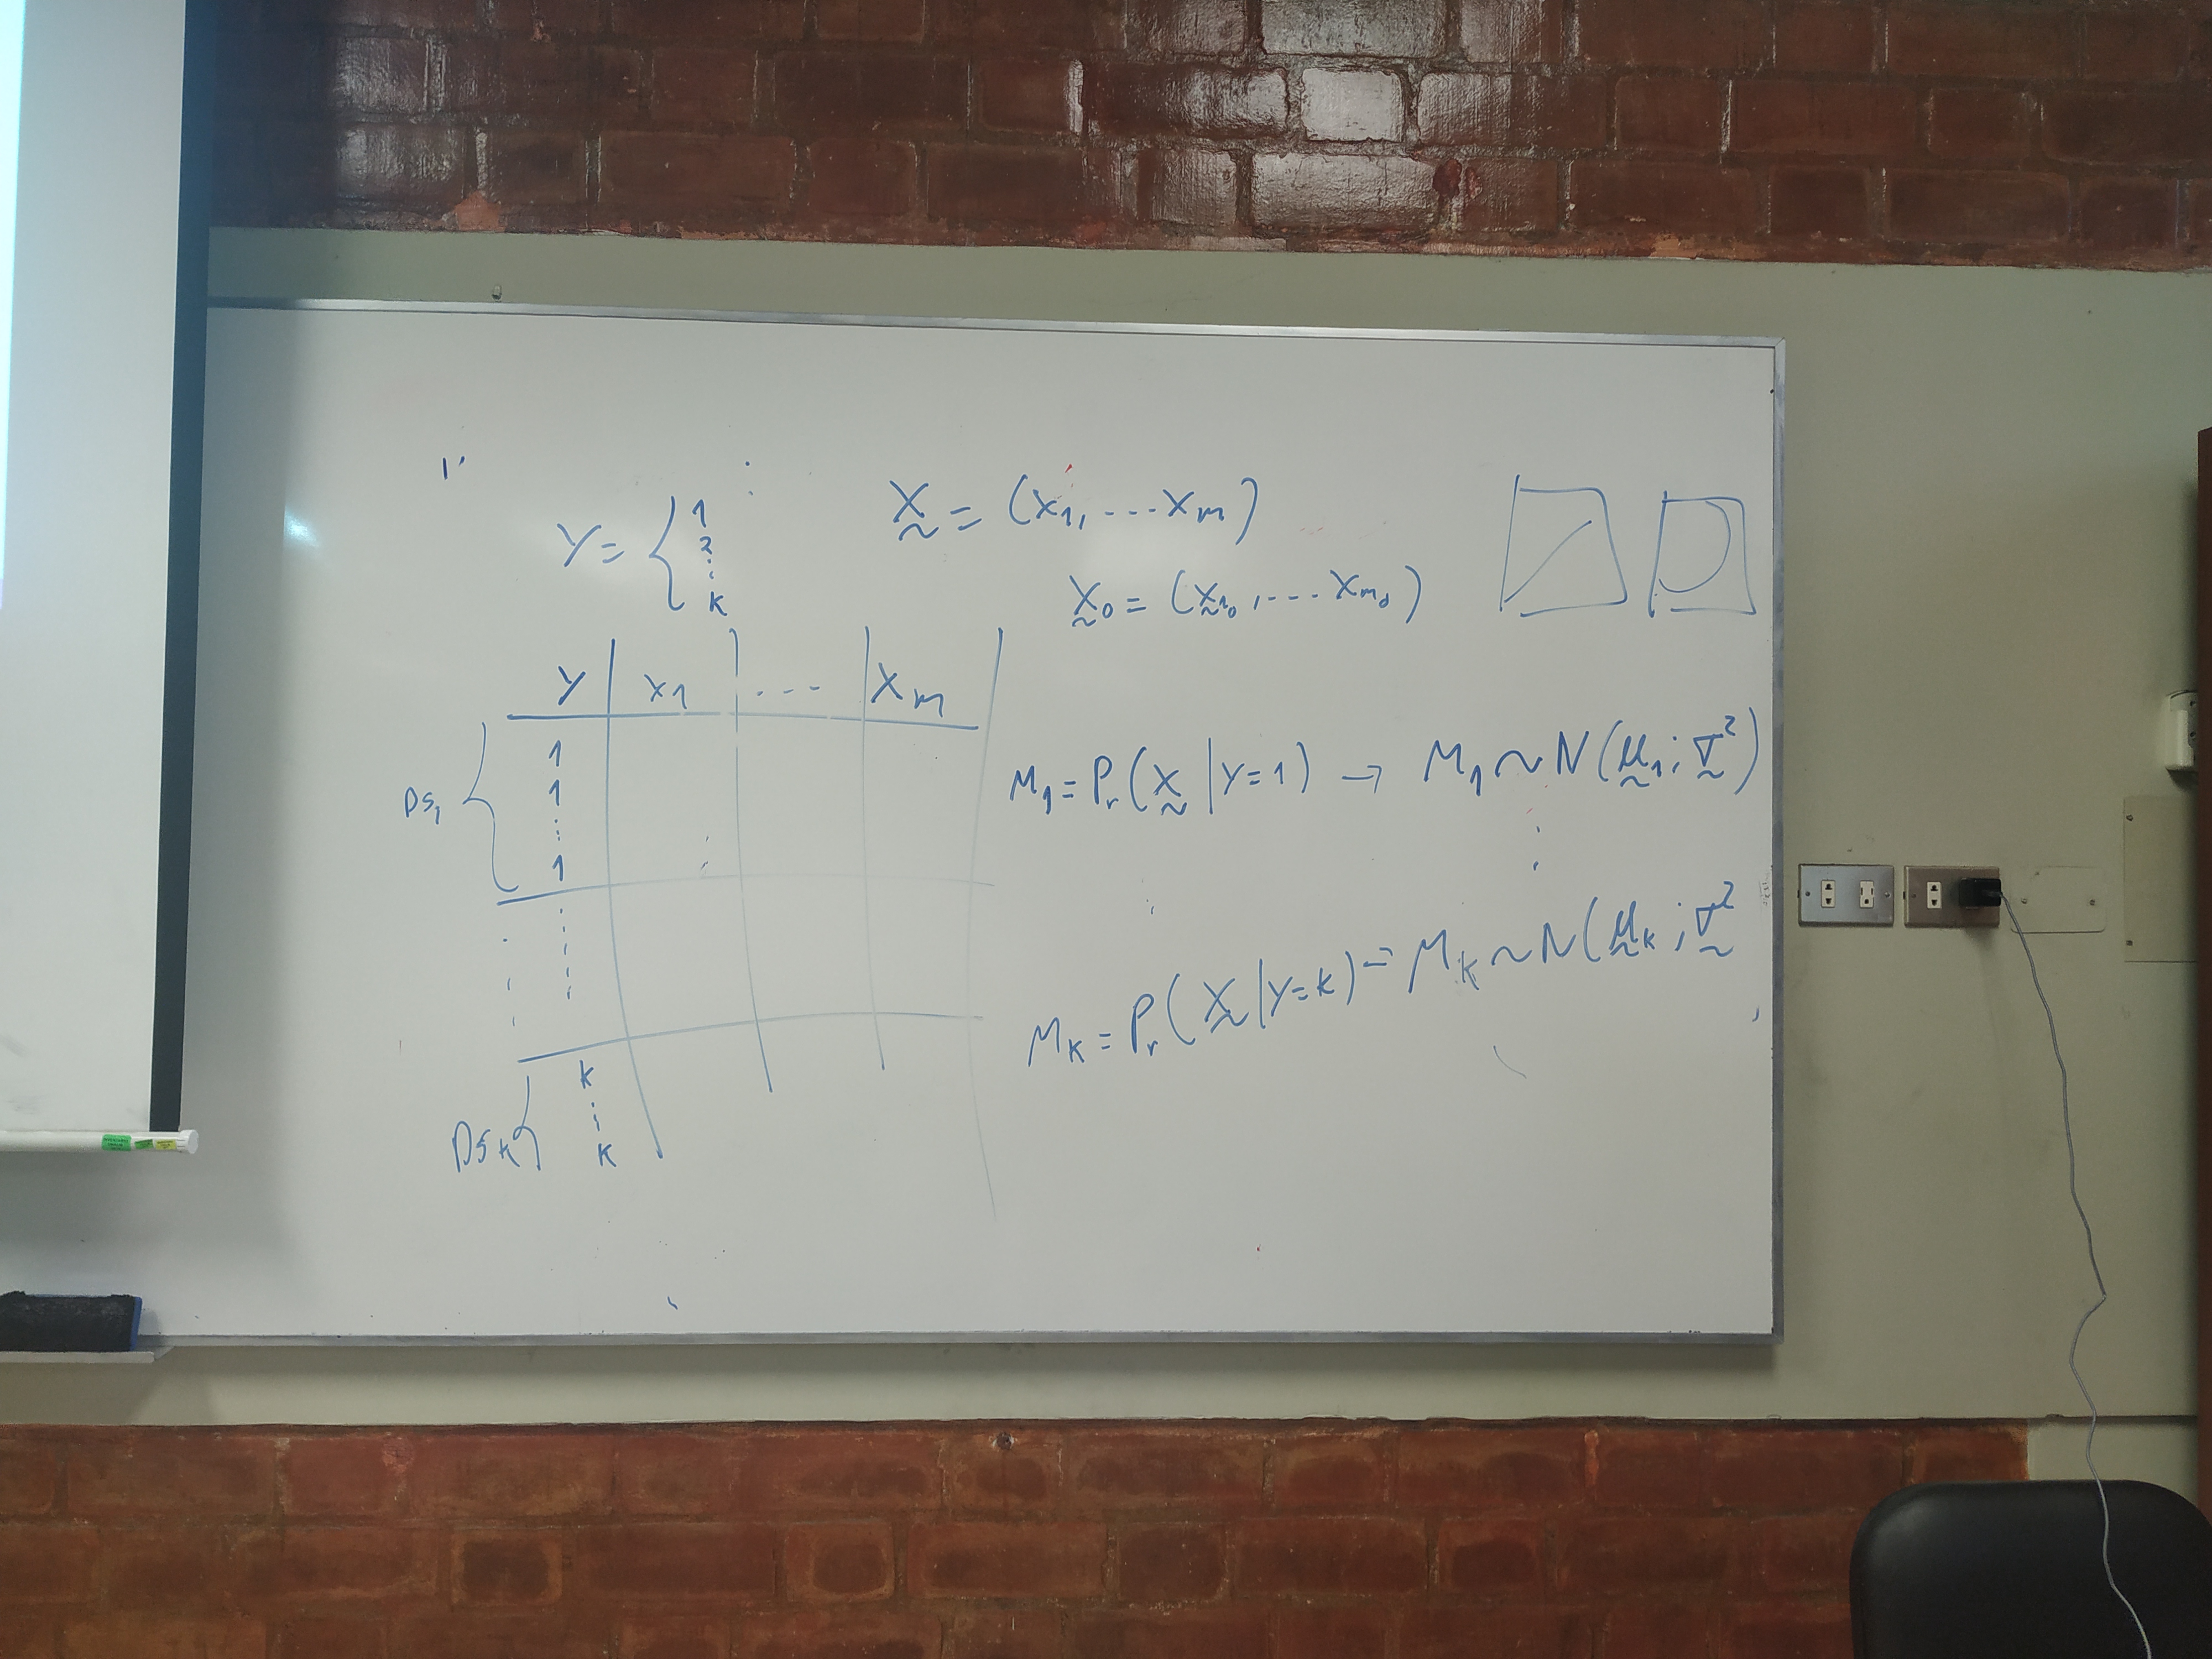 Y = { 1 2 ⋮ K
X̰ = (X1, ... Xm)
X̰0 = (X̰10, ... Xm0)
Y | X1 | ... | Xm
DS1 { 1
1
⋮
1
⋮
DSK { K
⋮
K
M1 = Pr(X̰ | Y=1) → M1 ~ N(μ̰1 ; σ̰²)
⋮
MK = Pr(X̰ | Y=K) → MK ~ N(μ̰K ; σ̰²